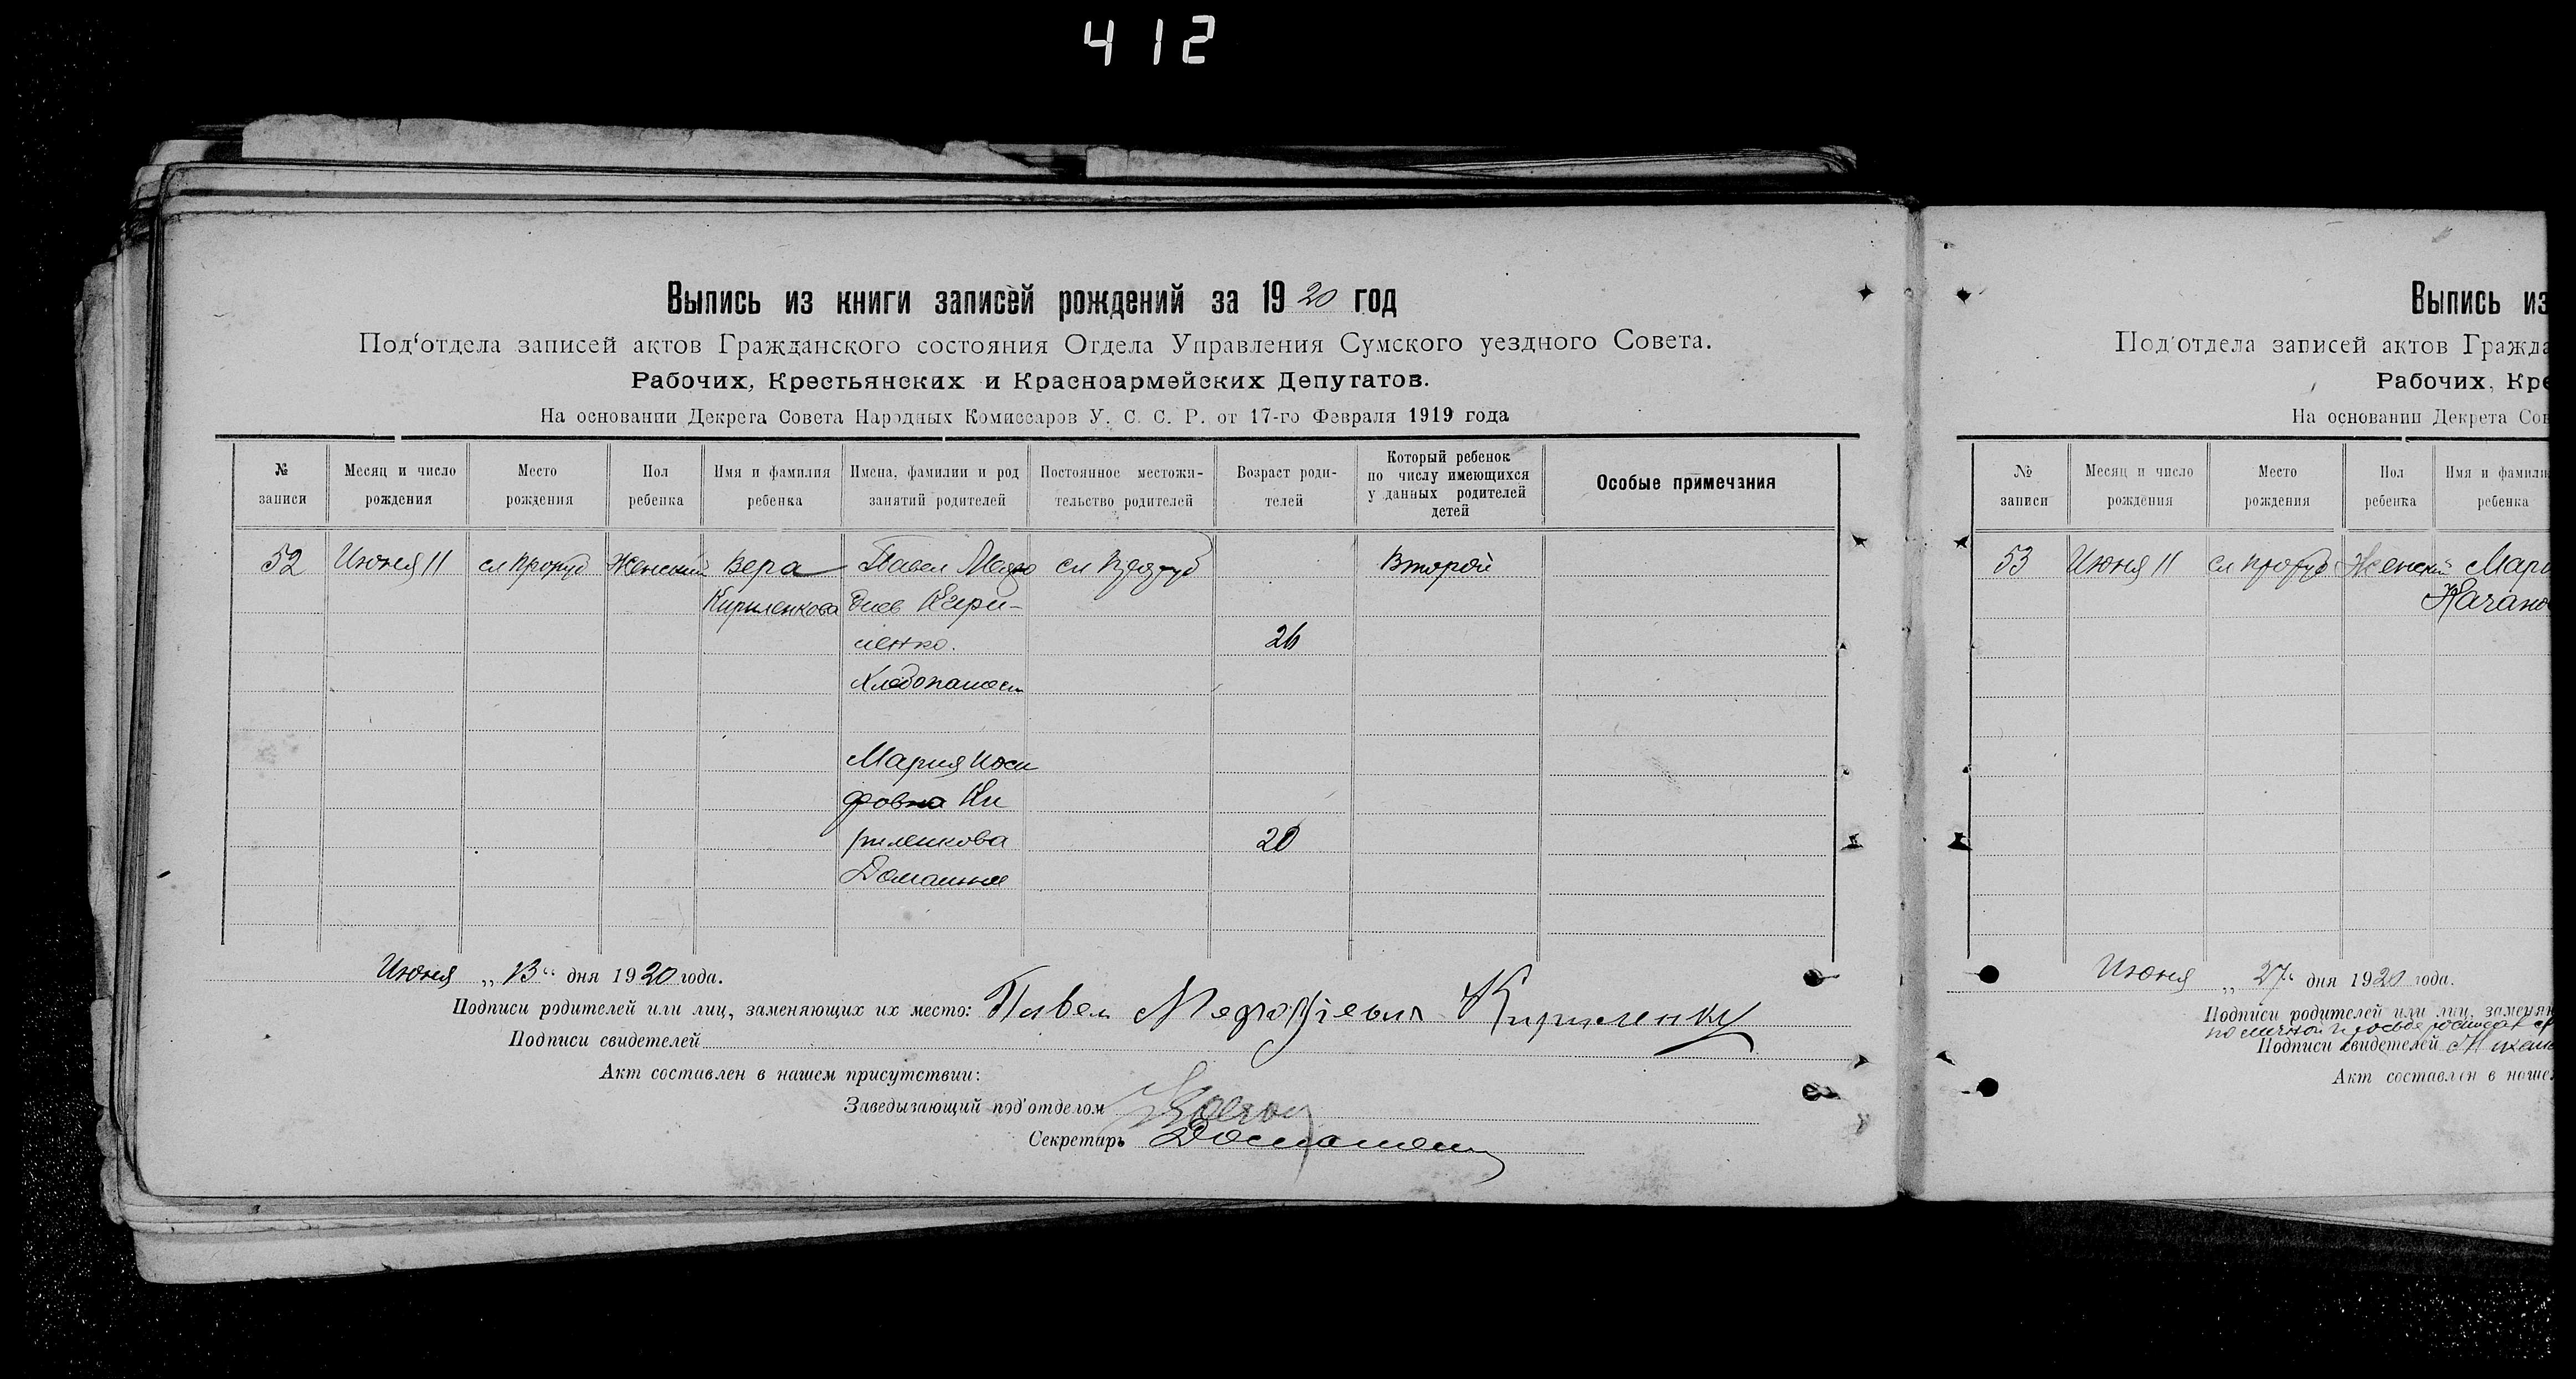 412
Выпись из книги записей рождений за 1920 год
Под‘отдела записей актов Гражданского состояния Отдела Управления Сумского уездного Совета.
Рабочих, Крестьянских и Красноармейских Депутатов.
На основании Декрета Совета Народных Комиссаров У. С. С. Р. от 17-го Февраля 1919 года
№ записи
Месяц и число рождения
Место рождения
Пол ребенка
Имя и фамилия ребенка
Имена, фамилии и род занятий родителей
Постоянное местожи- тельство родителей
Возраст роди- телей
Который ребенок по числу имеющихся у данных родителей детей
Особые примечания
52 Июня 11 сл Женский Вера Павел сл Второй
Кириленкова Кири-
ленко. 26
Хлебопашец
Мария
Ки
риленкова 20
Домашнее
Июня „13“ дня 1920 года.
Подписи родителей или лиц, заменяющих их место: Павел Кириленку
Подписи свидетелей
Акт составлен в нашем присутствии:
Заведывающий под‘отделом
Секретарь
Выпись из
Под‘отдела записей актов Гражда
Рабочих, Кре
На основании Декрета Сов
№ записи
Месяц и число рождения
Место рождения
Пол ребенка
Имя и фамили ребенка
53 Июня 11 сл Женский Мари
Качано
Июня „27“ дня 1920 года.
Подписи родителей или лиц, заменяю
по личной просьбе
Подписи свидетелей
Акт составлен в наше